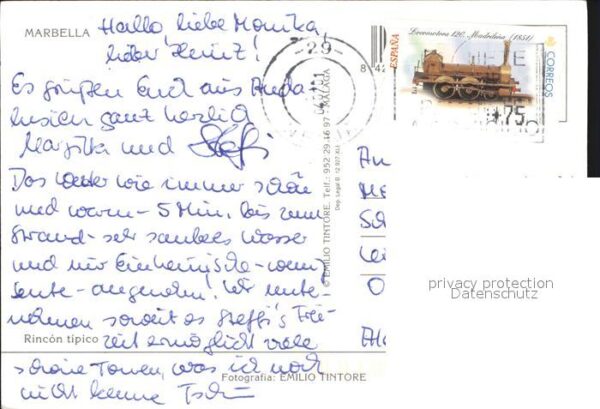 MARBELLA
Hallo, liebe Monika,
lieber Heinz!
Es grüßen Euch aus Anda
lusien ganz herzlich
Margitta und Steffi
Das Wetter wie immer schön
und warm - 5 Min. bis zum
Strand - sehr sauberes Wasser
und nur Einheimische - wenig
Leute - angenehm! Wir unter-
nehmen soweit es Steffi's Frei-
Rincón típico
zeit ermöglicht viele
schöne Touren, was ich noch
nicht kenne Tschü
Fotografía: EMILIO TINTORE
© EMILIO TINTORE. Telf.: 952 29 16 97 - MALAGA
Dep. Legal B. 12.907-XIII
-29-
Locomotora 120, Madrileña (1851)
ESPAÑA
CORREOS
75
8 42
An
Sch
O
privacy protection
Datenschutz